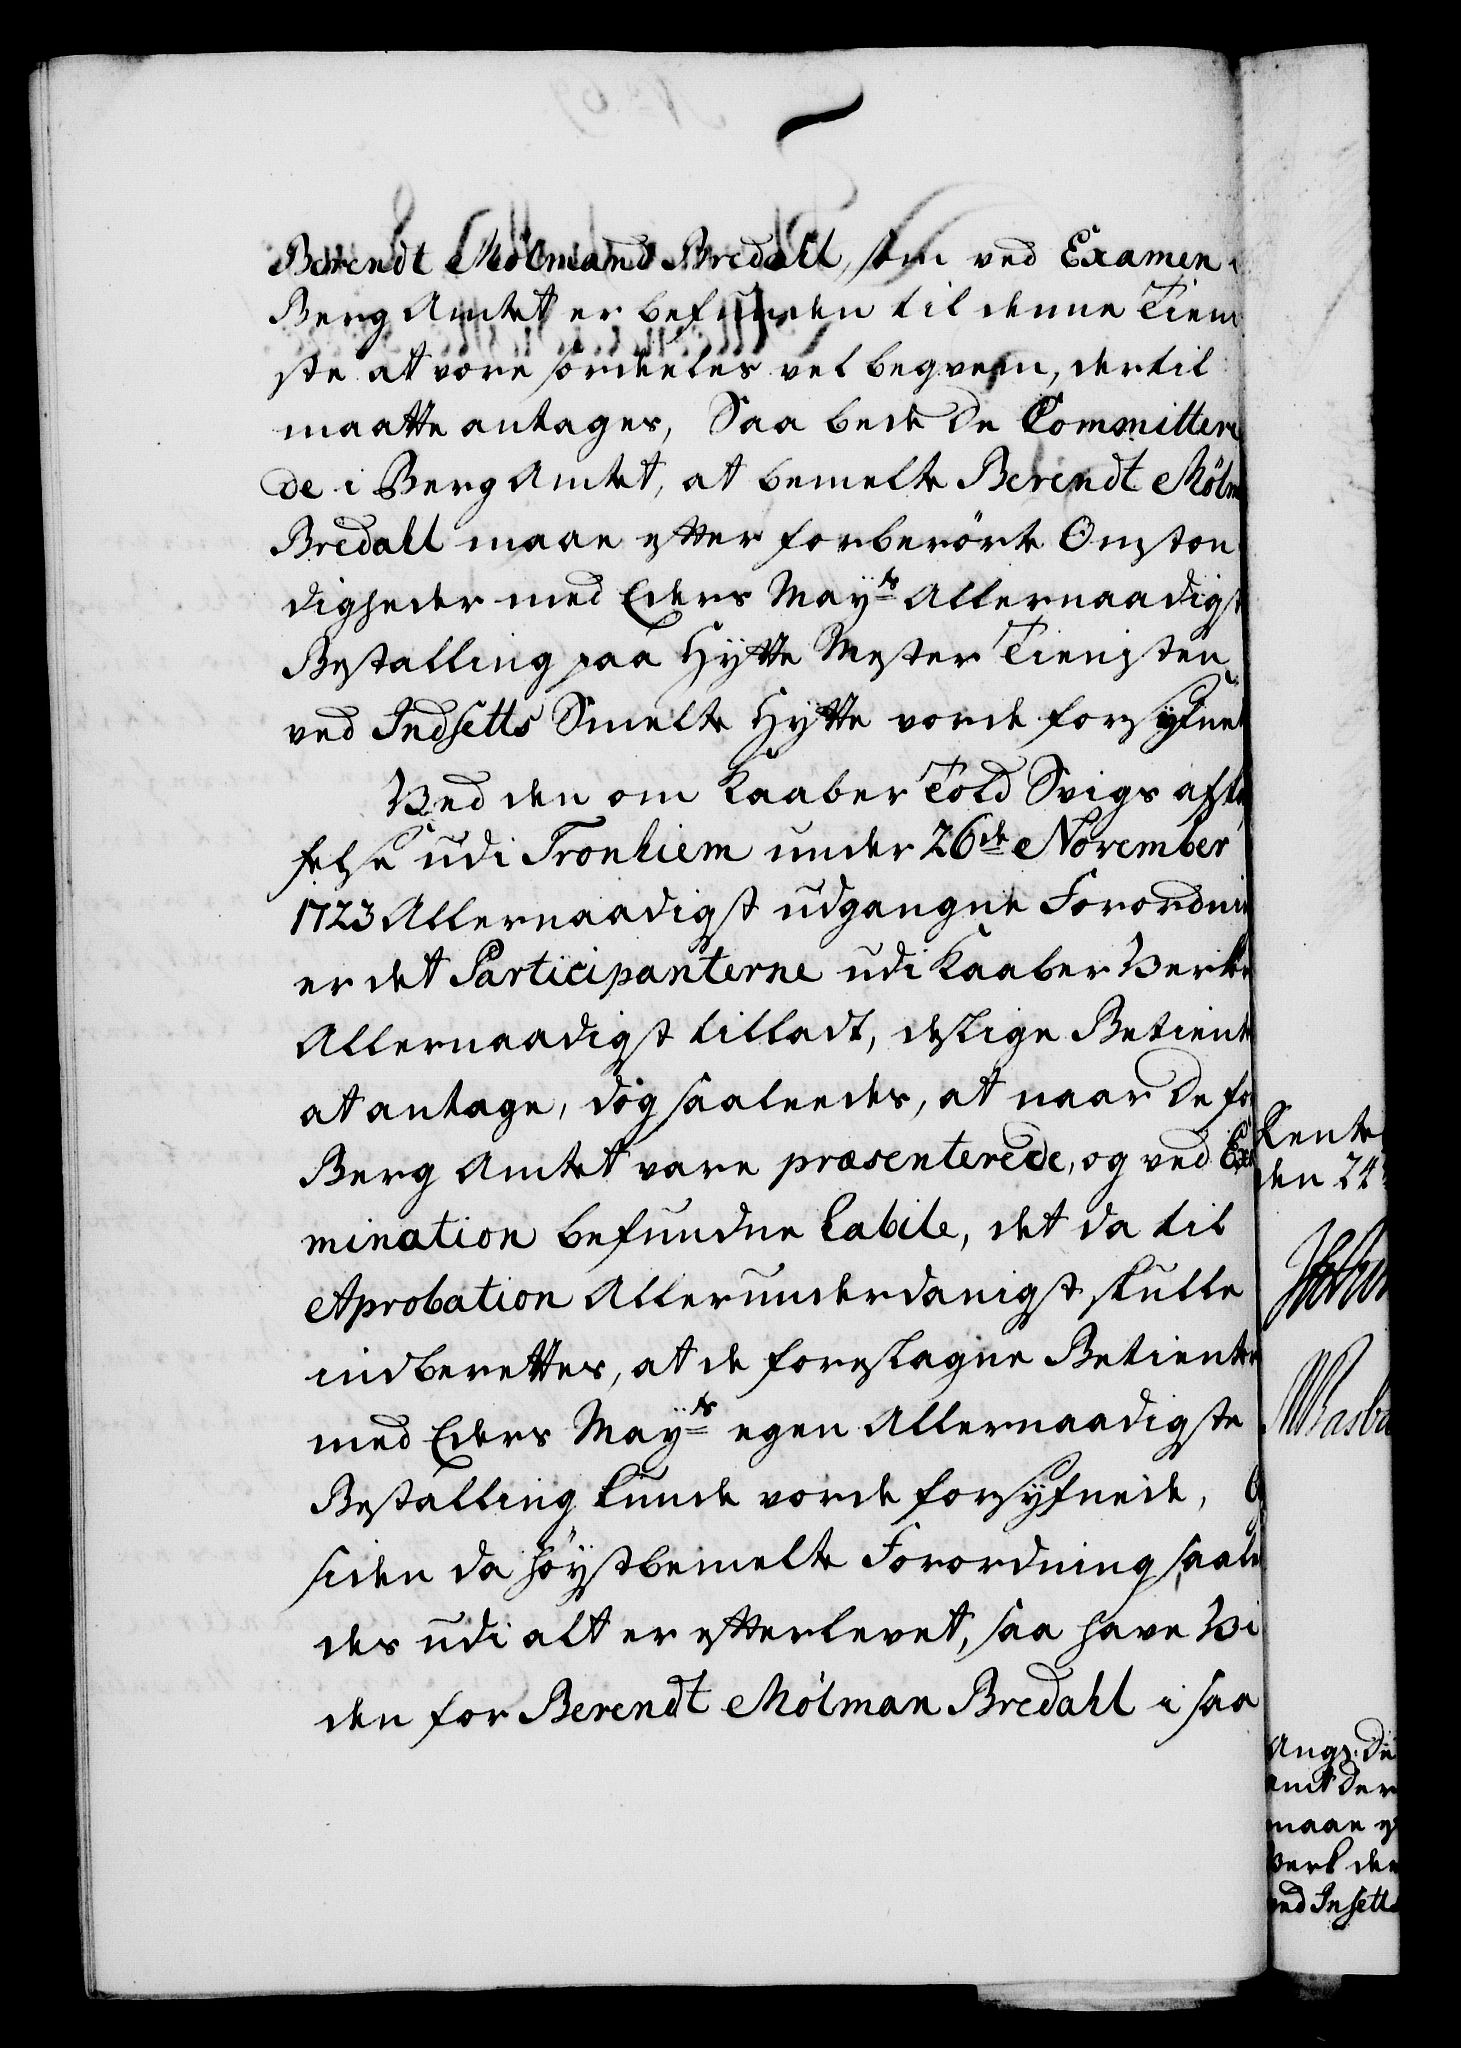 Berendt Mölmand Bredahl, som ved Examen i
Berg Amtet er befunden til denne Tiene
ste at være særdeeles vel beqvem, dertil
maatte antages, Saa bede De Committere
de i Berg Amtet, at bemelte Berendt Mölm
Bredahl maae efter forberörte Omstæn
digheder med Eders Mayts Allernaadigst
Bestalling paa Hytte Mester Tienesten
ved Indsetts Smelte Hytte vorde forsyfnet
Ved den om Kaaber Told Svigs afska
felse udi Tronhiem under 26de November
1723 Allernaadigst udgangne Forordnin
er det Participanterne udi Kaaber Verker
Allernaadigst tilladt, deslige Betiente
at antage, dog saaleedes, at naar De for
Berg Amtet vare præsenterede, og ved Exa
mination befundne habile, det da til
Aprobation Allerunderdanigst skulle
indberettes, at de foreslagne Betienter
med Eders Mayts egen Allernaadigste
Bestalling kunde vorde forsyfnede, Og
siden da höystbemelte Forordning, saale
des udi alt er efterlevet, saa have Vi
den for Berendt Mölman Bredahl i saa
Rente
den 24
Ang: De
amt der
maae
Verk der
ved Insetts